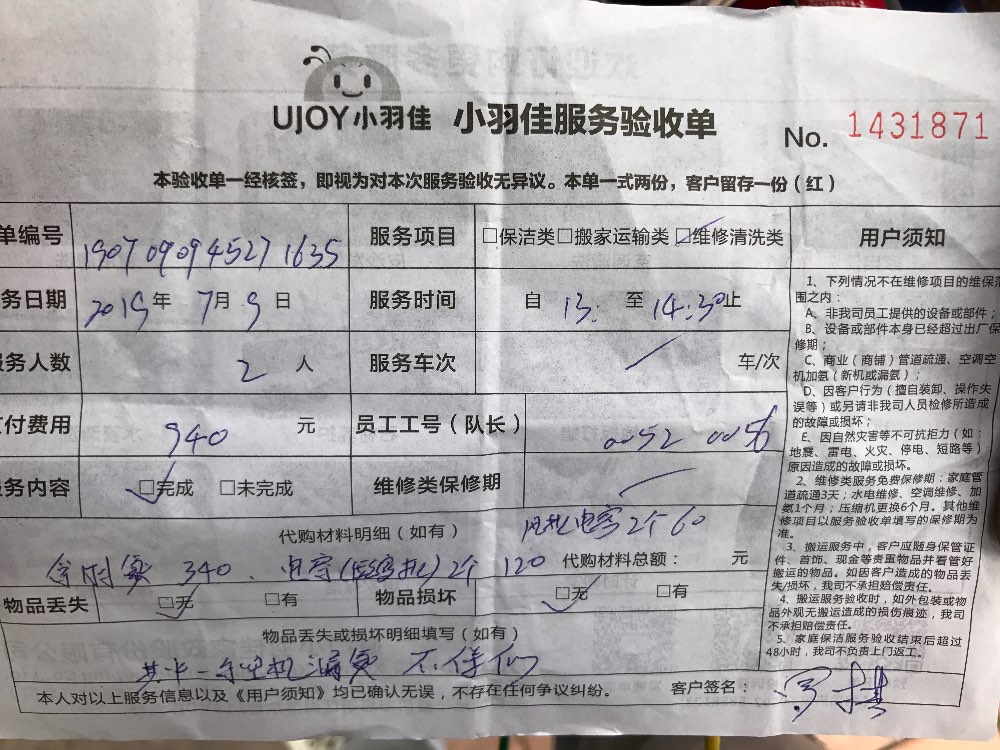 UJOY小羽佳 小羽佳服务验收单
No. 1431871
本验收单一经核签，即视为对本次服务验收无异议。本单一式两份，客户留存一份（红）
单编号 19070909452716​35 服务项目 □保洁类□搬家运输类□维修清洗类
务日期 2019年 7月9日 服务时间 自 13: 至 14:30止
服务人数 2 人 服务车次 车/次
付费用 940 元 员工工号（队长） 0052 0056
服务内容 □完成 □未完成 维修类保修期
代购材料明细（如有） 风机电容2个60
340 电容(压缩机)2个 120 代购材料总额： 元
物品丢失 □无 □有 物品损坏 □无 □有
物品丢失或损坏明细填写（如有）
其中一台主机漏氟 不保修
本人对以上服务信息以及《用户须知》均已确认无误，不存在任何争议纠纷。 客户签名：
用户须知
1、下列情况不在维修项目的维保范
围之内：
A、非我司员工提供的设备或部件；
B、设备或部件本身已经超过出厂保
修期；
C、商业（商铺）管道疏通、空调空
机加氨（新机或漏氨）；
D、因客户行为（擅自装卸、操作失
误等）或另请非我司人员检修所造成
的故障或损坏；
E、因自然灾害等不可抗拒力（如：
地震、雷电、火灾、停电、短路等）
原因造成的故障或损坏。
2、维修类服务免费保修期：家庭管
道疏通3天；水电维修、空调维修、加
氨1个月；压缩机更换6个月。其他维
修项目以服务验收单填写的保修期为
准。
3、搬运服务中，客户应随身保管证
件、首饰、现金等贵重物品并看管好
搬运的物品。如因客户造成的物品丢
失/损坏，我司不承担赔偿责任。
4、搬运服务验收时，如外包装或物
品外观无搬运造成的损伤痕迹，我司
不承担赔偿责任。
5、家庭保洁服务验收结束后超过
48小时，我司不负责上门返工。